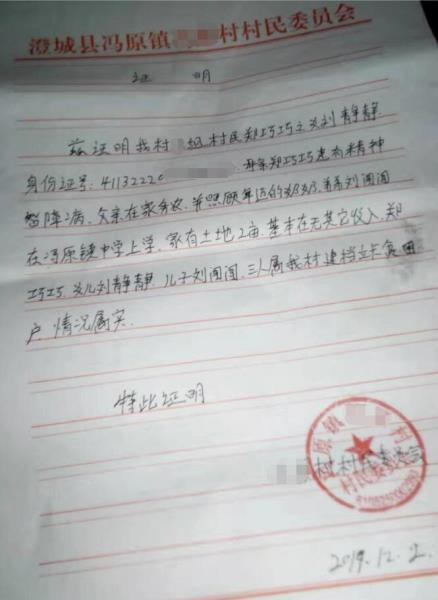 澄城县冯原镇 村村民委员会
证 明
兹证明我村 组村民郑巧巧之女刘静静
身份证号:4113222 母亲郑巧巧患有精神
智障2病、父亲在家务农、并照顾年迈的 弟弟刘闹闹
在冯原镇中学上学、家有土地2亩、基本在无其它收入、郑
巧巧、女儿刘静静、儿子刘闹闹、三人属我村建档立卡贫困
户 情况属实.
特此证明
村村民委员会
冯原镇 村
村民委员会
2019.12.2.